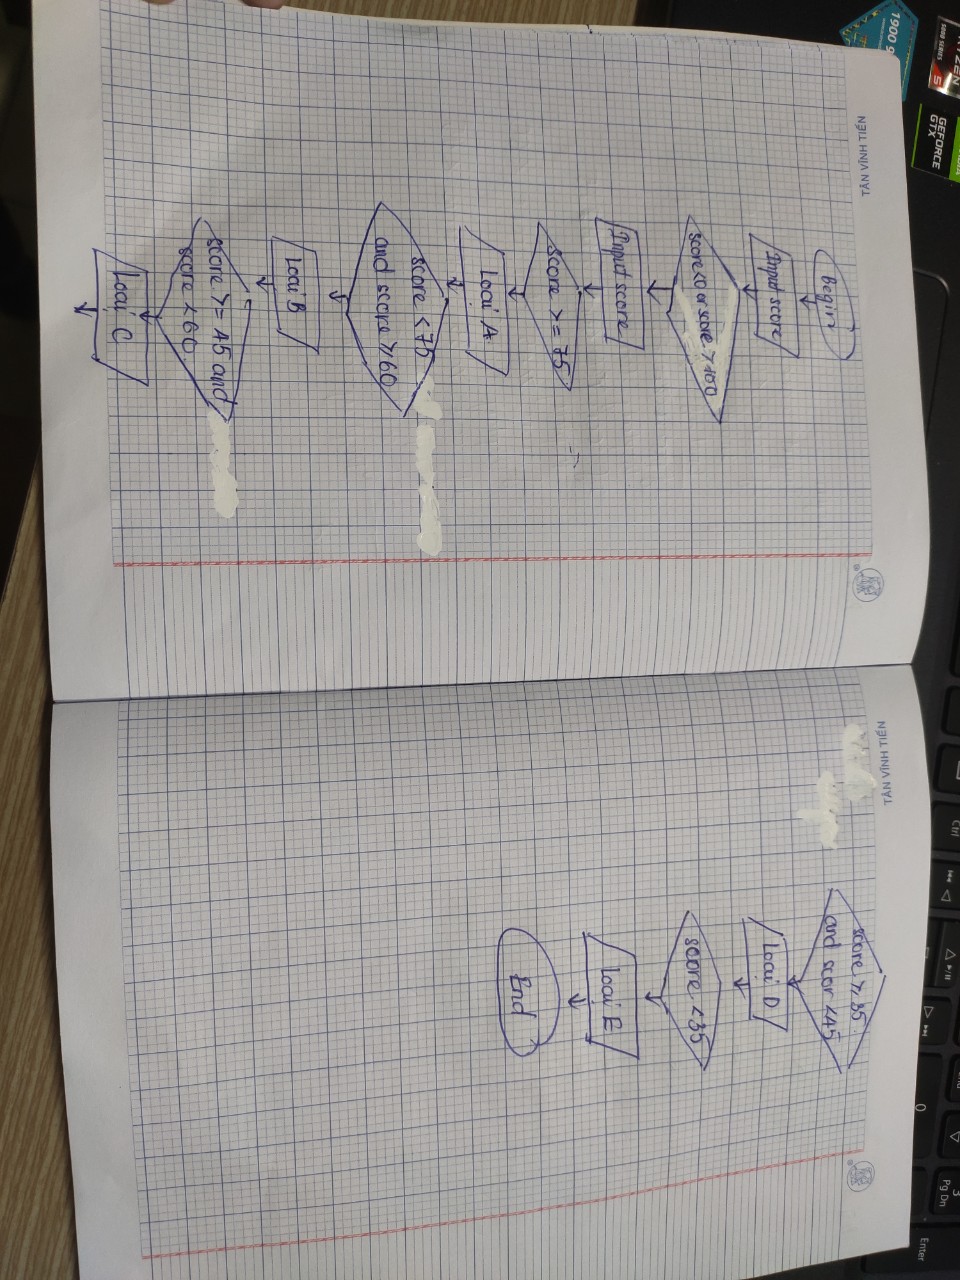 RYZEN
5
5000 SERIES
GEFORCE
GTX
1900 9
Ctrl
3
Pg Dn
Enter
0
TÂN VĨNH TIẾN
Begin
Input score
score<0 or score >100
Input score
score >= 75
Loại A
score <75
and score ≥60
Loại B
score >= 45 and
score <60.
Loại C
TÂN VĨNH TIẾN
score ≥35
and scor <45
Loại D
score <35
Loại E
End